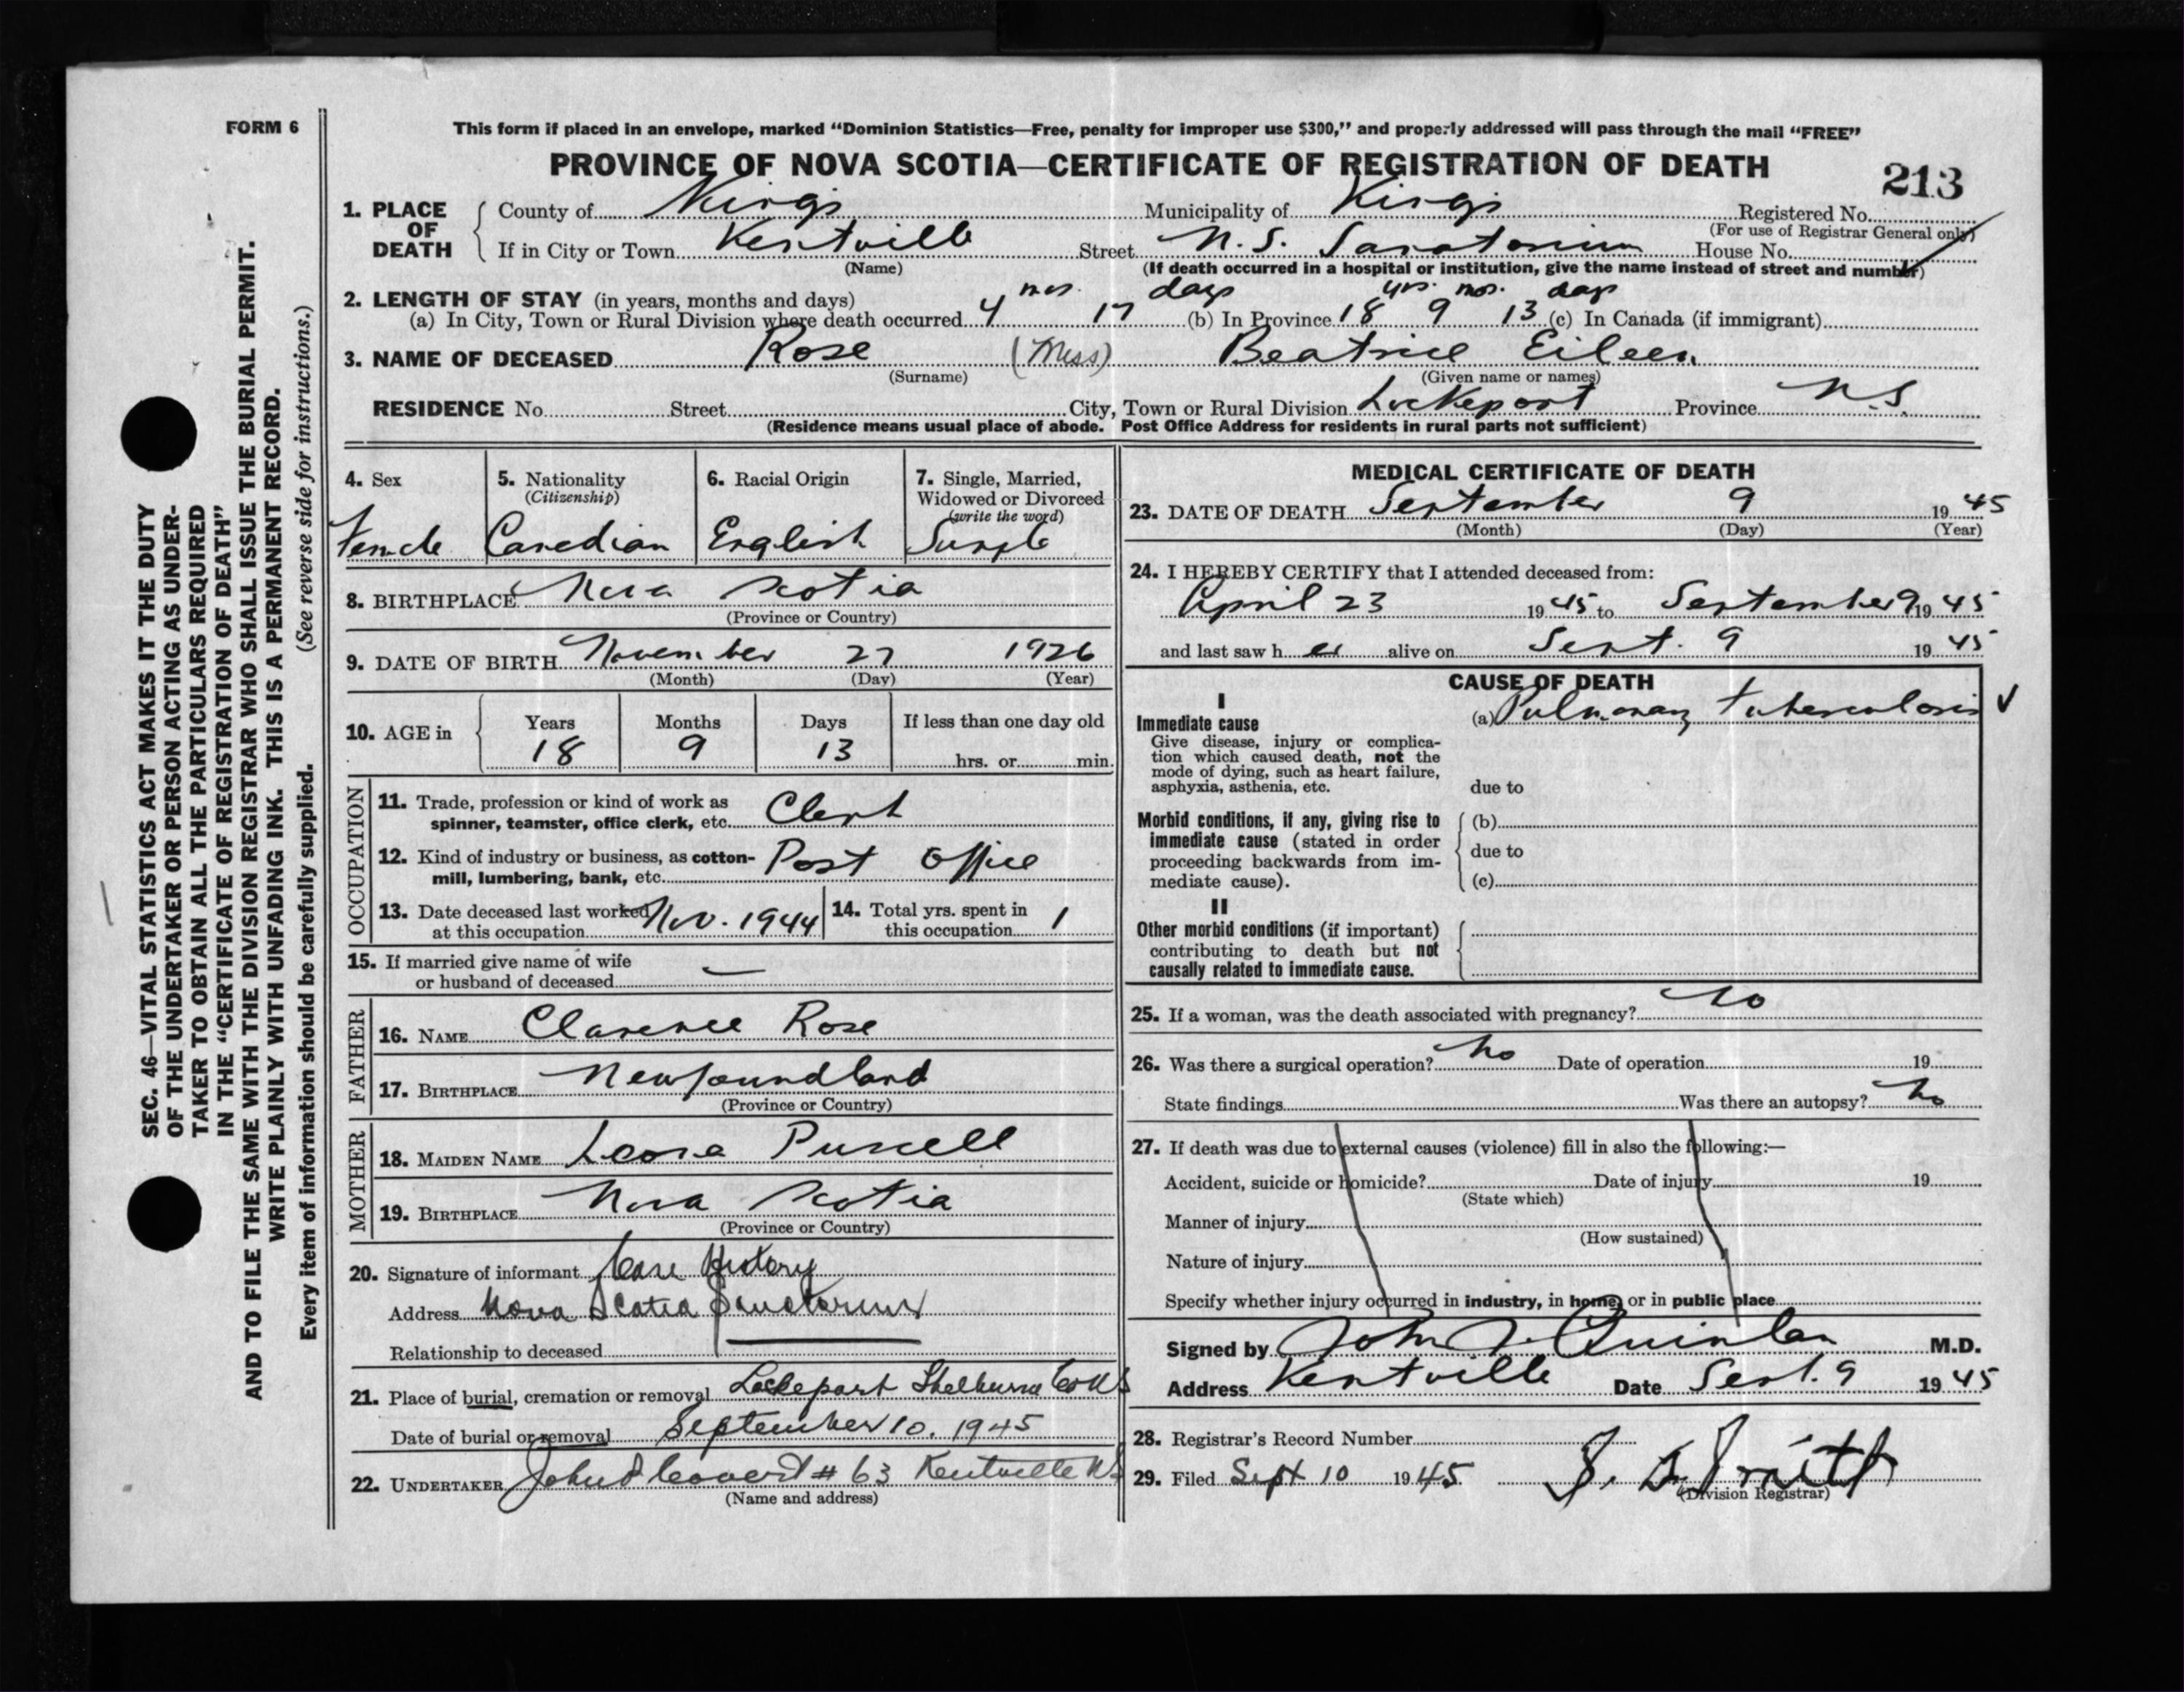 FORM 6
This form if placed in an envelope, marked “Dominion Statistics—Free, penalty for improper use $300,” and properly addressed will pass through the mail “FREE”
PROVINCE OF NOVA SCOTIA—CERTIFICATE OF REGISTRATION OF DEATH
213
1. PLACE OF DEATH
County of Kings Municipality of Kings Registered No.
(For use of Registrar General only)
If in City or Town Kentville Street N. S. Sanatorium House No.
(Name) (If death occurred in a hospital or institution, give the name instead of street and number)
2. LENGTH OF STAY (in years, months and days)
(a) In City, Town or Rural Division where death occurred 4 mos. 17 days (b) In Province 18 yrs. 9 mos. 13 days (c) In Canada (if immigrant)
3. NAME OF DECEASED Rose (Miss) Beatrice Eileen
(Surname) (Given name or names)
RESIDENCE No. Street City, Town or Rural Division Lockeport Province N.S.
(Residence means usual place of abode. Post Office Address for residents in rural parts not sufficient)
4. Sex Female
5. Nationality (Citizenship) Canadian
6. Racial Origin English
7. Single, Married, Widowed or Divorced (write the word) Single
8. BIRTHPLACE Nova Scotia
(Province or Country)
9. DATE OF BIRTH November 27 1926
(Month) (Day) (Year)
10. AGE in
Years Months Days If less than one day old
18 9 13 hrs. or min.
OCCUPATION
11. Trade, profession or kind of work as
spinner, teamster, office clerk, etc. Clerk
12. Kind of industry or business, as cotton-
mill, lumbering, bank, etc. Post Office
13. Date deceased last worked
at this occupation Nov. 1944
14. Total yrs. spent in
this occupation 1
15. If married give name of wife
or husband of deceased —
FATHER
16. NAME Clarence Rose
17. BIRTHPLACE Newfoundland
(Province or Country)
MOTHER
18. MAIDEN NAME Leona Purcell
19. BIRTHPLACE Nova Scotia
(Province or Country)
20. Signature of informant Case History
Address Nova Scotia Sanatorium
Relationship to deceased
21. Place of burial, cremation or removal Lockeport Shelburne Co NS
Date of burial or removal September 10, 1945
22. UNDERTAKER John # 63 Kentville NS
(Name and address)
MEDICAL CERTIFICATE OF DEATH
23. DATE OF DEATH September 9 1945
(Month) (Day) (Year)
24. I HEREBY CERTIFY that I attended deceased from:
April 23 1945 to September 9 1945
and last saw her alive on Sept. 9 1945
CAUSE OF DEATH
I
Immediate cause
Give disease, injury or complica-
tion which caused death, not the
mode of dying, such as heart failure,
asphyxia, asthenia, etc.
(a) Pulmonary tuberculosis ✓
due to
Morbid conditions, if any, giving rise to
immediate cause (stated in order
proceeding backwards from im-
mediate cause).
(b)
due to
(c)
II
Other morbid conditions (if important)
contributing to death but not
causally related to immediate cause.
25. If a woman, was the death associated with pregnancy? no
26. Was there a surgical operation? no Date of operation 19
State findings Was there an autopsy? no
27. If death was due to external causes (violence) fill in also the following:—
Accident, suicide or homicide? Date of injury 19
(State which)
Manner of injury
(How sustained)
Nature of injury
Specify whether injury occurred in industry, in home, or in public place
Signed by John J. Quinlan M.D.
Address Kentville Date Sept. 9 1945
28. Registrar's Record Number
29. Filed Sept 10 1945
(Division Registrar)
SEC. 46—VITAL STATISTICS ACT MAKES IT THE DUTY
OF THE UNDERTAKER OR PERSON ACTING AS UNDER-
TAKER TO OBTAIN ALL THE PARTICULARS REQUIRED
IN THE “CERTIFICATE OF REGISTRATION OF DEATH”
AND TO FILE THE SAME WITH THE DIVISION REGISTRAR WHO SHALL ISSUE THE BURIAL PERMIT.
WRITE PLAINLY WITH UNFADING INK. THIS IS A PERMANENT RECORD.
Every item of information should be carefully supplied. (See reverse side for instructions.)